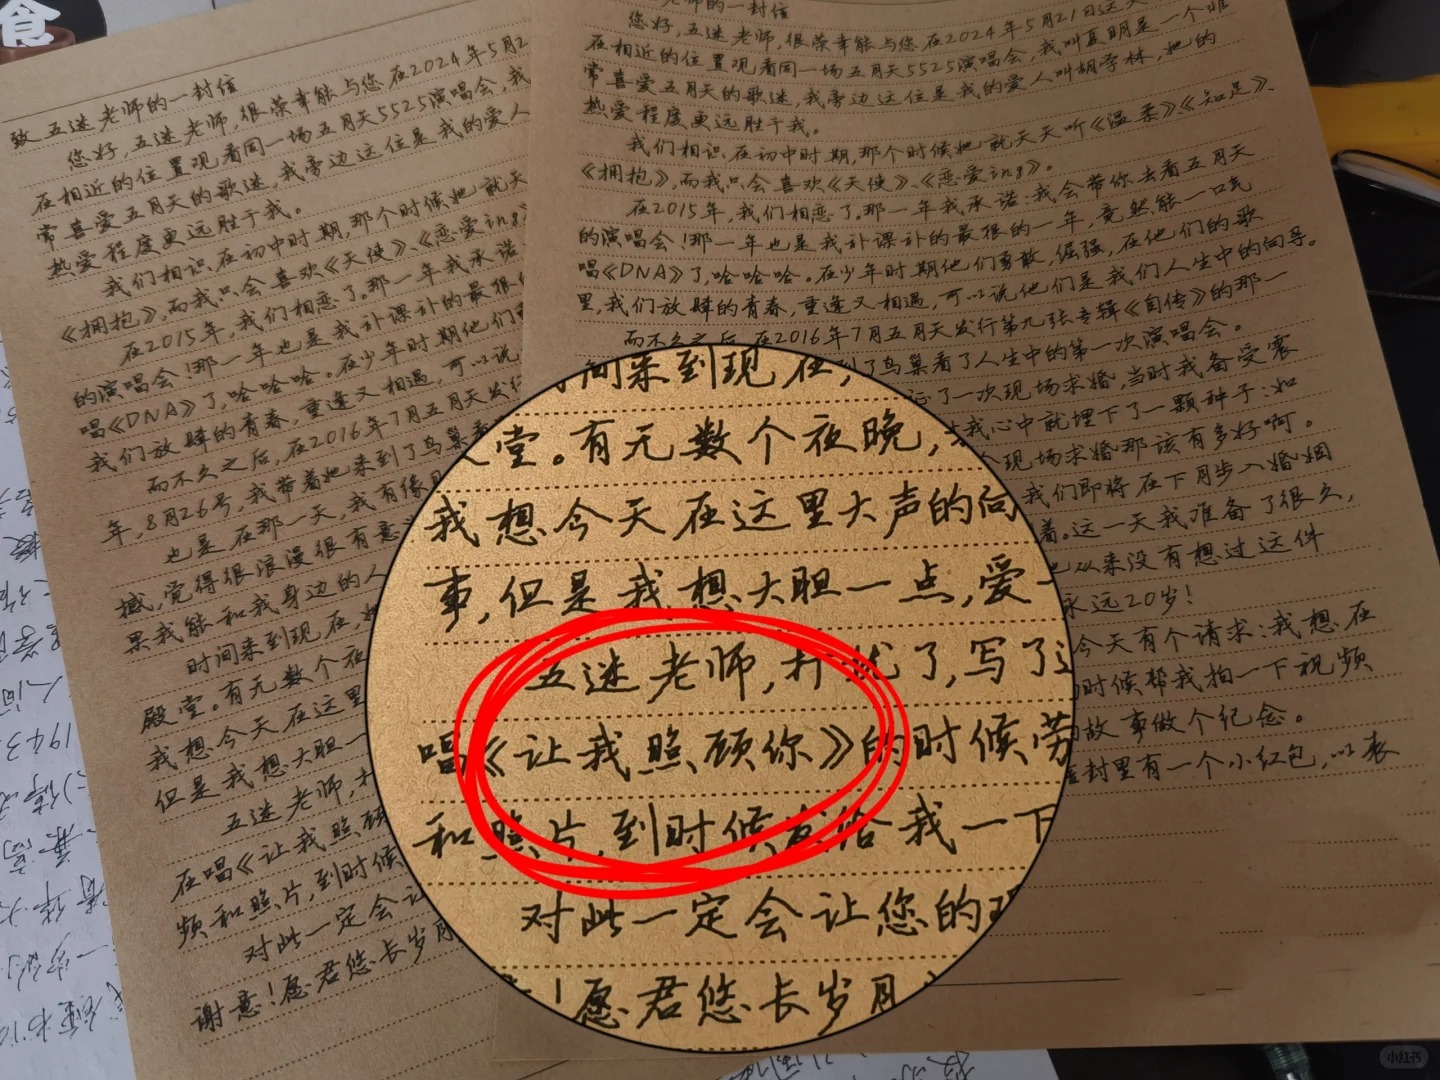 食
致五迷老师的一封信
您好,五迷老师,很荣幸能与您在2024年5月2
在相近的位置观看同一场五月天5525演唱会,我
常喜爱五月天的歌迷,我旁边这位是我的爱人
热爱程度更远胜于我。
我们相识在初中时期,那个时候她就天
《拥抱》,而我只会喜欢《天使》、《恋爱ing》
在2015年,我们相恋了。那一年我承诺
的演唱会!那一年也是我补课补的最狠的
唱《DNA》了,哈哈哈。在少年时期他们
我们放肆的青春,重逢又相遇,可以说
而不久之后,在2016年7月五月天发行
年,8月26号,我带着她来到了鸟巢看
也是在那一天,我有缘
撼,觉得很浪漫很有意
果我能和我身边的人
时间来到现在,她
殿堂。有无数个夜
我想今天在这里
但是我想大胆一
五迷老师,打
在唱《让我照顾
频和照片,到时候
对此一定会让
谢意!愿君您长岁月
老师的一封信
您好,五迷老师,很荣幸能与您在2024年5月21日这天
在相近的位置观看同一场五月天5525演唱会,我叫夏明是一个非
常喜爱五月天的歌迷,我旁边这位是我的爱人叫胡李林,她的
热爱程度更远胜于我。
我们相识在初中时期,那个时候她就天天听《温柔》《知足》、
《拥抱》,而我只会喜欢《天使》、《恋爱ing》。
在2015年,我们相恋了。那一年我承诺:我会带你去看五月天
的演唱会!那一年也是我补课补的最狠的一年,竟然能一口气
唱《DNA》了,哈哈哈。在少年时期他们勇敢,倔强,在他们的歌
里,我们放肆的青春,重逢又相遇,可以说他们是我们人生中的向导。
而不久之后,在2016年7月五月天发行第九张专辑《自传》的那一
到了鸟巢看了人生中的第一次演唱会。
证了一次现场求婚,当时我备受震
我心中就埋下了一颗种子:如
现场求婚那该有多好啊。
我们即将在下月步入婚姻
着。这一天我准备了很久,
也从来没有想过这件
永远20岁!
今天有个请求:我想在
时候帮我拍一下视频
故事做个纪念。
信封里有一个小红包,以表
间来到现在,
堂。有无数个夜晚,
我想今天在这里大声的向
事,但是我想大胆一点,爱
五迷老师,打扰了,写了这
唱《让我照顾你》的时候劳
和照片,到时候发给我一下
对此一定会让您的观
!愿君您长岁月
小红书